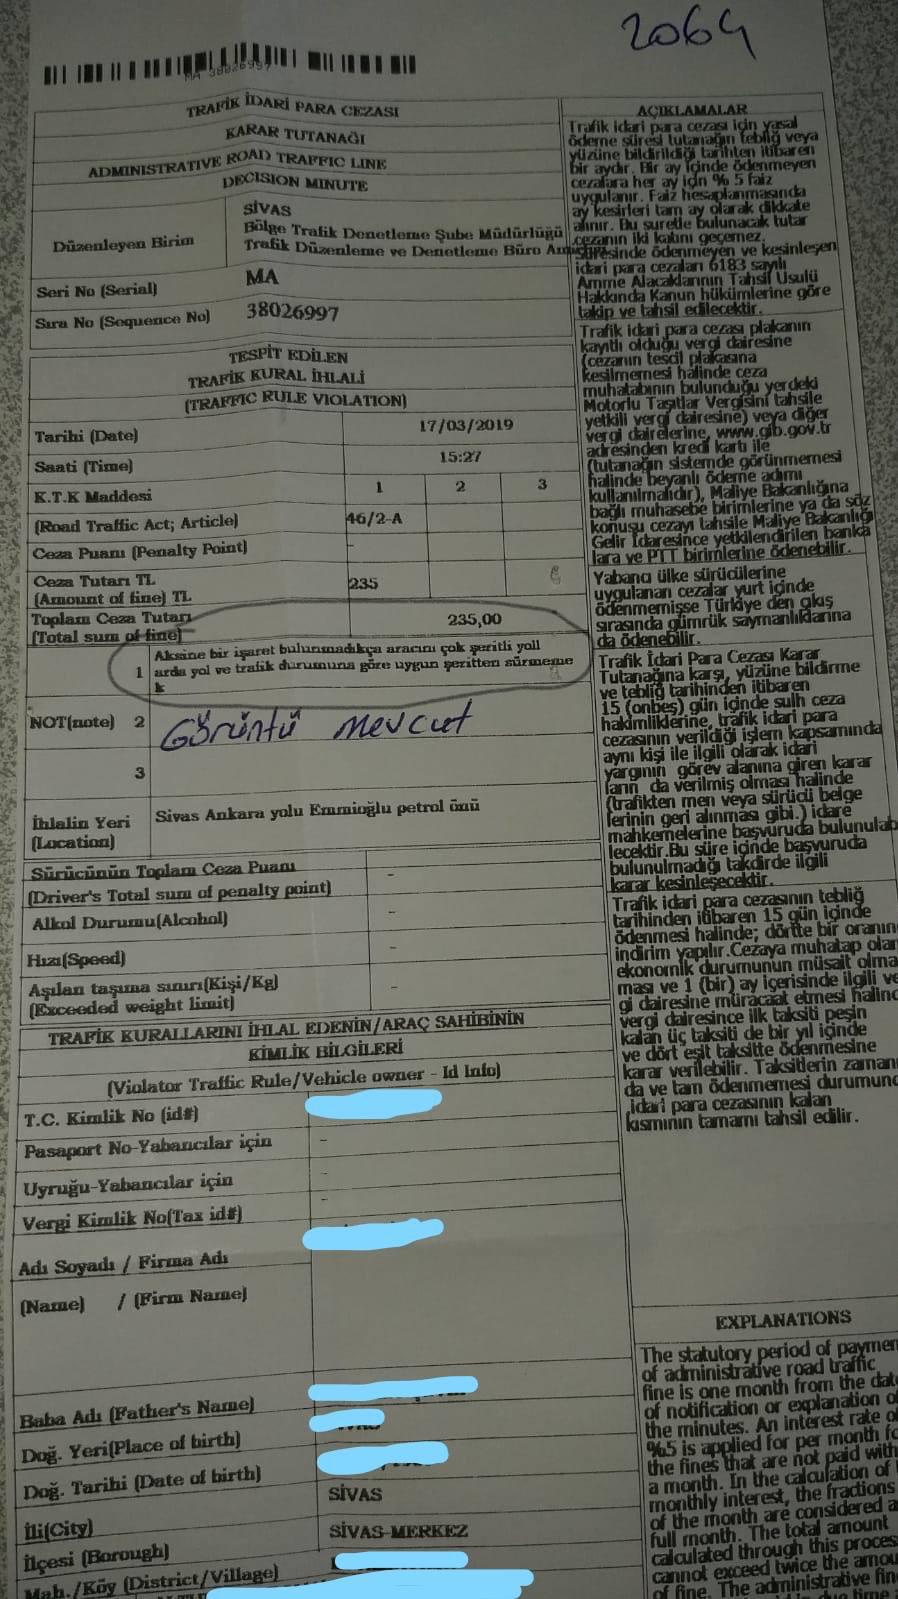 2064
MA 38026997
TRAFİK İDARİ PARA CEZASI
KARAR TUTANAĞI
ADMINISTRATIVE ROAD TRAFFIC LINE
DECISION MINUTE
Düzenleyen Birim
SİVAS
Bölge Trafik Denetleme Şube Müdürlüğü
Trafik Düzenleme ve Denetleme Büro
Seri No (Serial) MA
Sıra No (Sequence No) 38026997
TESPİT EDİLEN
TRAFİK KURAL İHLALİ
(TRAFFIC RULE VIOLATION)
Tarihi (Date) 17/03/2019
Saati (Time) 15:27
K.T.K Maddesi 1 2 3
(Road Traffic Act; Article) 46/2-A
Ceza Puanı (Penalty Point) -
Ceza Tutarı TL
(Amount of fine) TL 235
Toplam Ceza Tutarı 235,00
(Total sum of fine)
Aksine bir işaret bulunmadıkça aracını çok şeritli yoll
1 arda yol ve trafik durumuna göre uygun şeritten sürmeme
k
NOT(note) 2 Görüntü mevcut
3
İhlalin Yeri Sivas Ankara yolu Emmioğlu petrol önü
(Location)
Sürücünün Toplam Ceza Puanı -
(Driver's Total sum of penalty point)
Alkol Durumu(Alcohol) -
Hızı(Speed) -
Aşılan taşıma sınırı(Kişi/Kg) -
(Exceeded weight limit)
TRAFİK KURALLARINI İHLAL EDENİN/ARAÇ SAHİBİNİN
KİMLİK BİLGİLERİ
(Violator Traffic Rule/Vehicle owner - Id Info)
T.C. Kimlik No (id#)
Pasaport No-Yabancılar için -
Uyruğu-Yabancılar için -
Vergi Kimlik No(Tax id#) -
Adı Soyadı / Firma Adı
(Name) / (Firm Name)
Baba Adı (Father's Name)
Doğ. Yeri(Place of birth)
Doğ. Tarihi (Date of birth)
İli(City) SİVAS
İlçesi (Borough) SİVAS-MERKEZ
Mah./Köy (District/Village)
AÇIKLAMALAR
Trafik idari para cezası için yasal
ödeme süresi tutanağın tebliğ veya
yüzüne bildirildiği tarihten itibaren
bir aydır. Bir ay içinde ödenmeyen
cezalara her ay için % 5 faiz
uygulanır. Faiz hesaplanmasında
ay kesirleri tam ay olarak dikkate
alınır. Bu suretle bulunacak tutar
cezanın iki katını geçemez.
Süresinde ödenmeyen ve kesinleşen
idari para cezaları 6183 sayılı
Amme Alacaklarının Tahsil Usulü
Hakkında Kanun hükümlerine göre
takip ve tahsil edilecektir.
Trafik idari para cezası plakanın
kayıtlı olduğu vergi dairesine
(cezanın tescil plakasına
kesilmemesi halinde ceza
muhatabının bulunduğu yerdeki
Motorlu Taşıtlar Vergisini tahsile
yetkili vergi dairesine) veya diğer
vergi dairelerine, www.gib.gov.tr
adresinden kredi kartı ile
(tutanağın sistemde görünmemesi
halinde beyanlı ödeme adımı
kullanılmalıdır), Maliye Bakanlığına
bağlı muhasebe birimlerine ya da söz
konusu cezayı tahsile Maliye Bakanlığı
Gelir İdaresince yetkilendirilen banka
lara ve PTT birimlerine ödenebilir.
Yabancı ülke sürücülerine
uygulanan cezalar yurt içinde
ödenmemişse Türkiye den çıkış
sırasında gümrük saymanlıklarına
da ödenebilir.
Trafik İdari Para Cezası Karar
Tutanağına karşı, yüzüne bildirme
ve tebliğ tarihinden itibaren
15 (onbeş) gün içinde sulh ceza
hakimliklerine, trafik idari para
cezasının verildiği işlem kapsamında
aynı kişi ile ilgili olarak idari
yargının görev alanına giren karar
ların da verilmiş olması halinde
(trafikten men veya sürücü belge
lerinin geri alınması gibi.) idare
mahkemelerine başvuruda bulunulab
ilecektir.Bu süre içinde başvuruda
bulunulmadığı takdirde ilgili
karar kesinleşecektir.
Trafik idari para cezasının tebliğ
tarihinden itibaren 15 gün içinde
ödenmesi halinde; dörtte bir oranın
indirim yapılır.Cezaya muhatap olan
ekonomik durumunun müsait olma
ması ve 1 (bir) ay içerisinde ilgili ve
gi dairesine müracaat etmesi halind
vergi dairesince ilk taksiti peşin
kalan üç taksiti de bir yıl içinde
ve dört eşit taksitte ödenmesine
karar verilebilir. Taksitlerin zaman
da ve tam ödenmemesi durumund
idari para cezasının kalan
kısmının tamamı tahsil edilir.
EXPLANATIONS
The statutory period of paymen
of administrative road traffic
fine is one month from the dat
of notification or explanation o
the minutes. An interest rate o
%5 is applied for per month fo
the fines that are not paid with
a month. In the calculation of
monthly interest, the fractions
of the month are considered a
full month. The total amount
calculated through this proces
cannot exceed twice the amou
of fine. The administrative fin